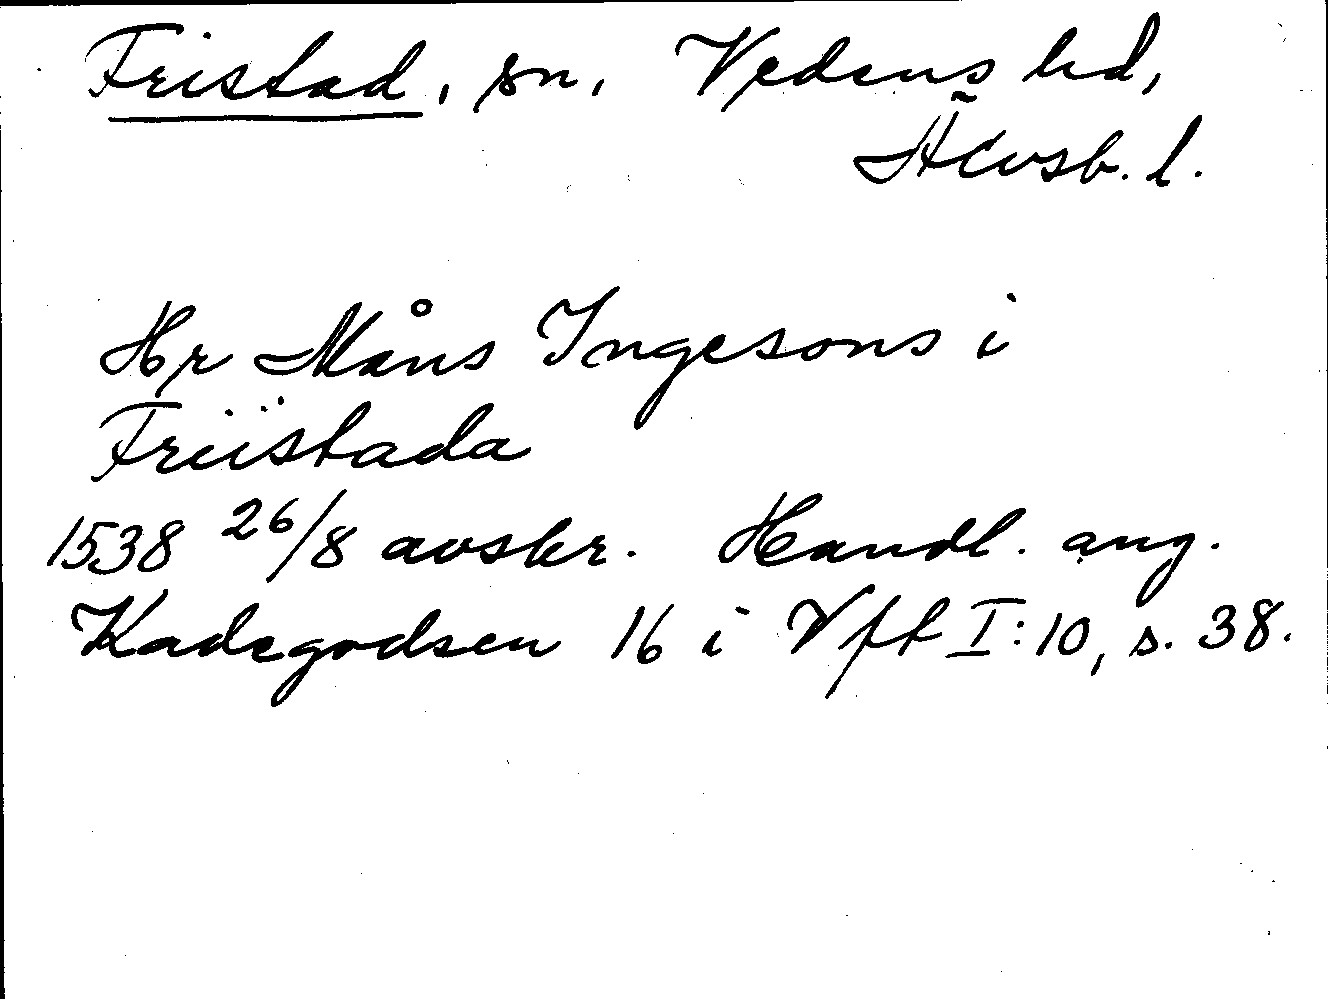 Fristad, sn, Vedens hd,
Älvsb. l.
Hr Måns Ingesons i
Friistada
1538 26/8 avskr. Handl. ang.
Kadegodsen 16 i Vft I:10, s. 38.